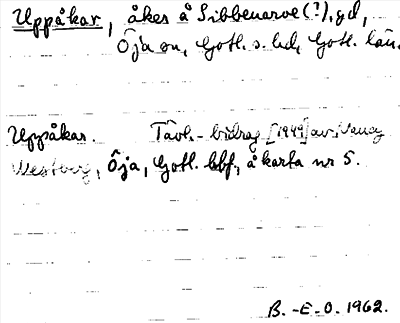 Uppåkar, åkes å Sibbenarve (?), gd,
Öja sn, Gotl. s. hd, Gotl. län.
Uppåkar. Tävl.-bidrag [1949] av
Westberg, Öja, Gotl. hbf., å karta nr 5.
B.-E-O. 1962.